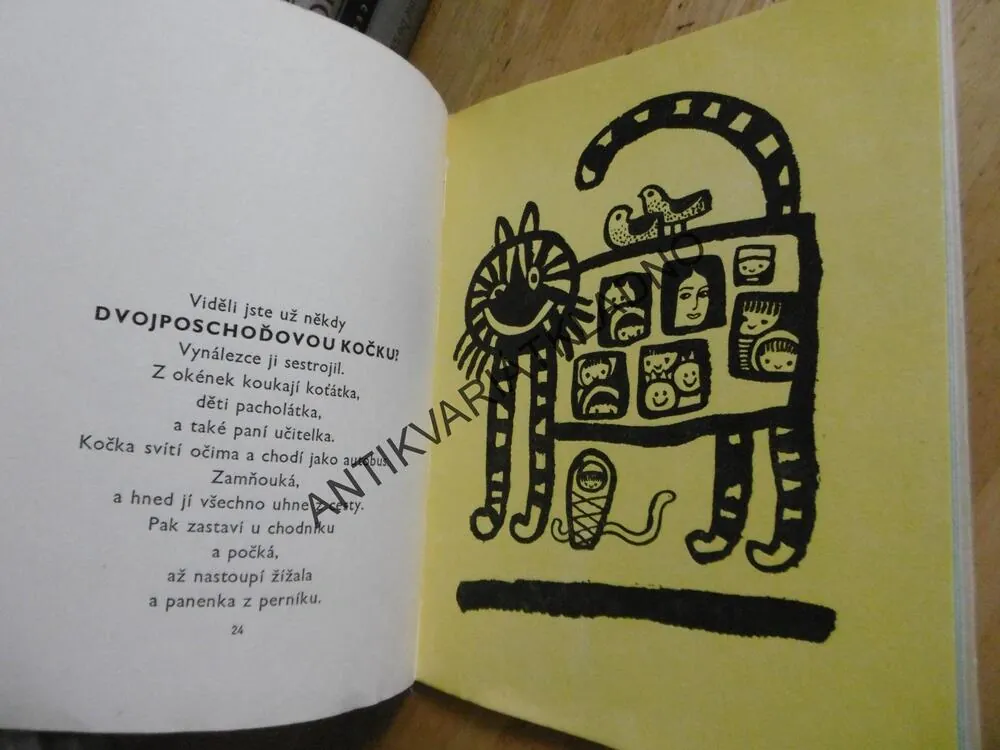 Viděli jste už někdy
DVOJPOSCHOĎOVOU KOČKU?
Vynálezce ji sestrojil.
Z okének koukají koťátka,
děti pacholátka,
a také paní učitelka.
Kočka svítí očima a chodí jako autobus.
Zamňouká,
a hned jí všechno uhne z cesty.
Pak zastaví u chodníku
a počká,
až nastoupí žížala
a panenka z perníku.
24
ANTIKVARIÁT KLADNO